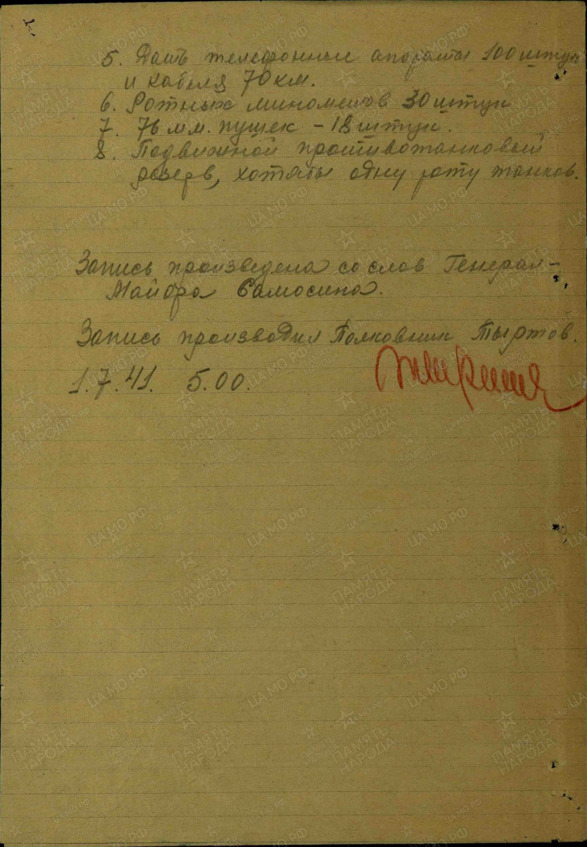 5. Дать телефонные апораты 100 штук
и кабеля 70 км.
6. Ротных минометов 30 штук
7. 76 м.м. пушек – 18 штук.
8. Подвижной противотанковый
резерв, хотябы одну роту танков.
Запись произведена со слов Генерал-
Майора Самосина.
Запись производил Полковник Тыртов.
1.7.41. 5.00.
ПАМЯТЬ НАРОДА
ЦАМО.РФ